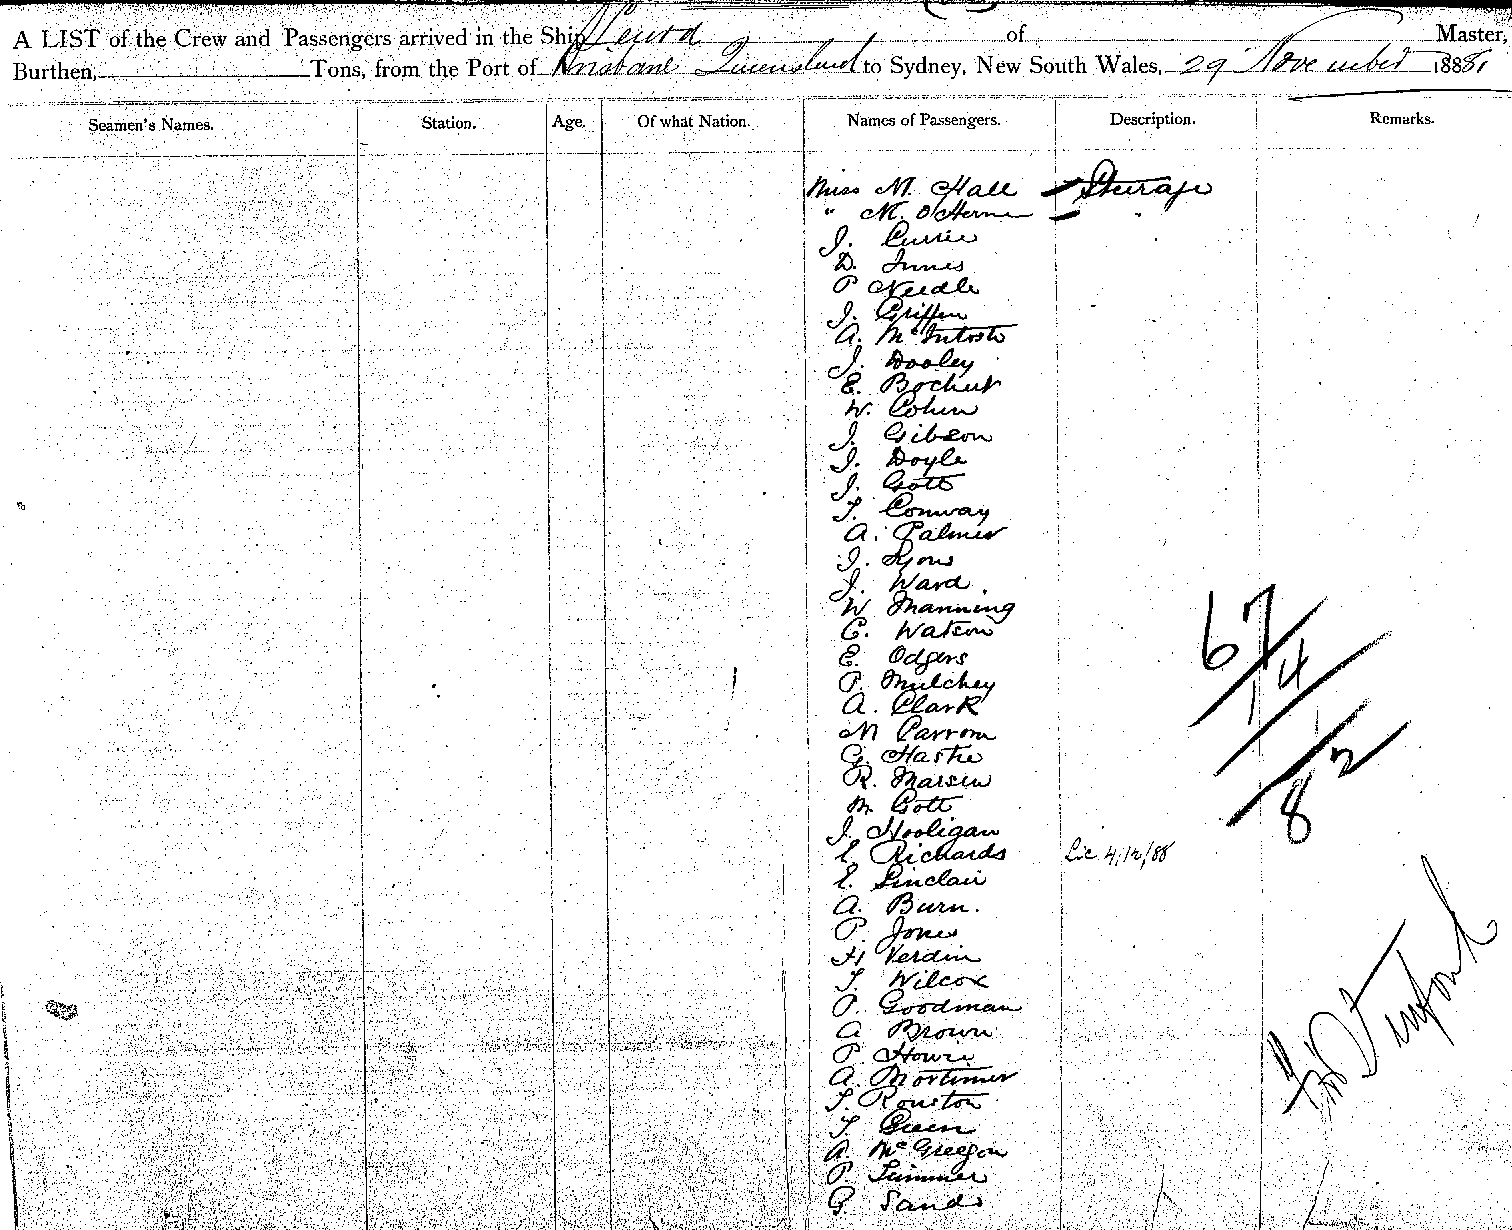 A LIST of the Crew and Passengers arrived in the Ship of Master,
Burthen, Tons, from the Port of Brisbane Queensland to Sydney, New South Wales, 29 November 1888,
Seamen's Names. Station. Age. Of what Nation. Names of Passengers. Description. Remarks.
Miss M. Hall Steerage
" M. O'Herne
J. Currie
D. Innes
P Needle
J. Griffen
A. McIntosh
J. Dooley
E. Bochut
W. Cohen
J. Gibson
J. Doyle
J. Gott
T. Conway
A. Palmer
J. Lyons
J. Ward.
W Manning
C. Watson
E. Odgers
P. Mulchey
A. Clark
M Parrom
G. Hastie
R. Marsen
M Gott
J. Hooligan
E. Richards Lic 4/12/88
E. Sinclair
A. Burn.
P. Jones
H Verdin
T. Wilcox
P. Goodman
A Brown
P. Howie
A. Mortimer
T. Rouston
T Green
A. McGreegor
P. Summer
G. Sands
67
14
1
82